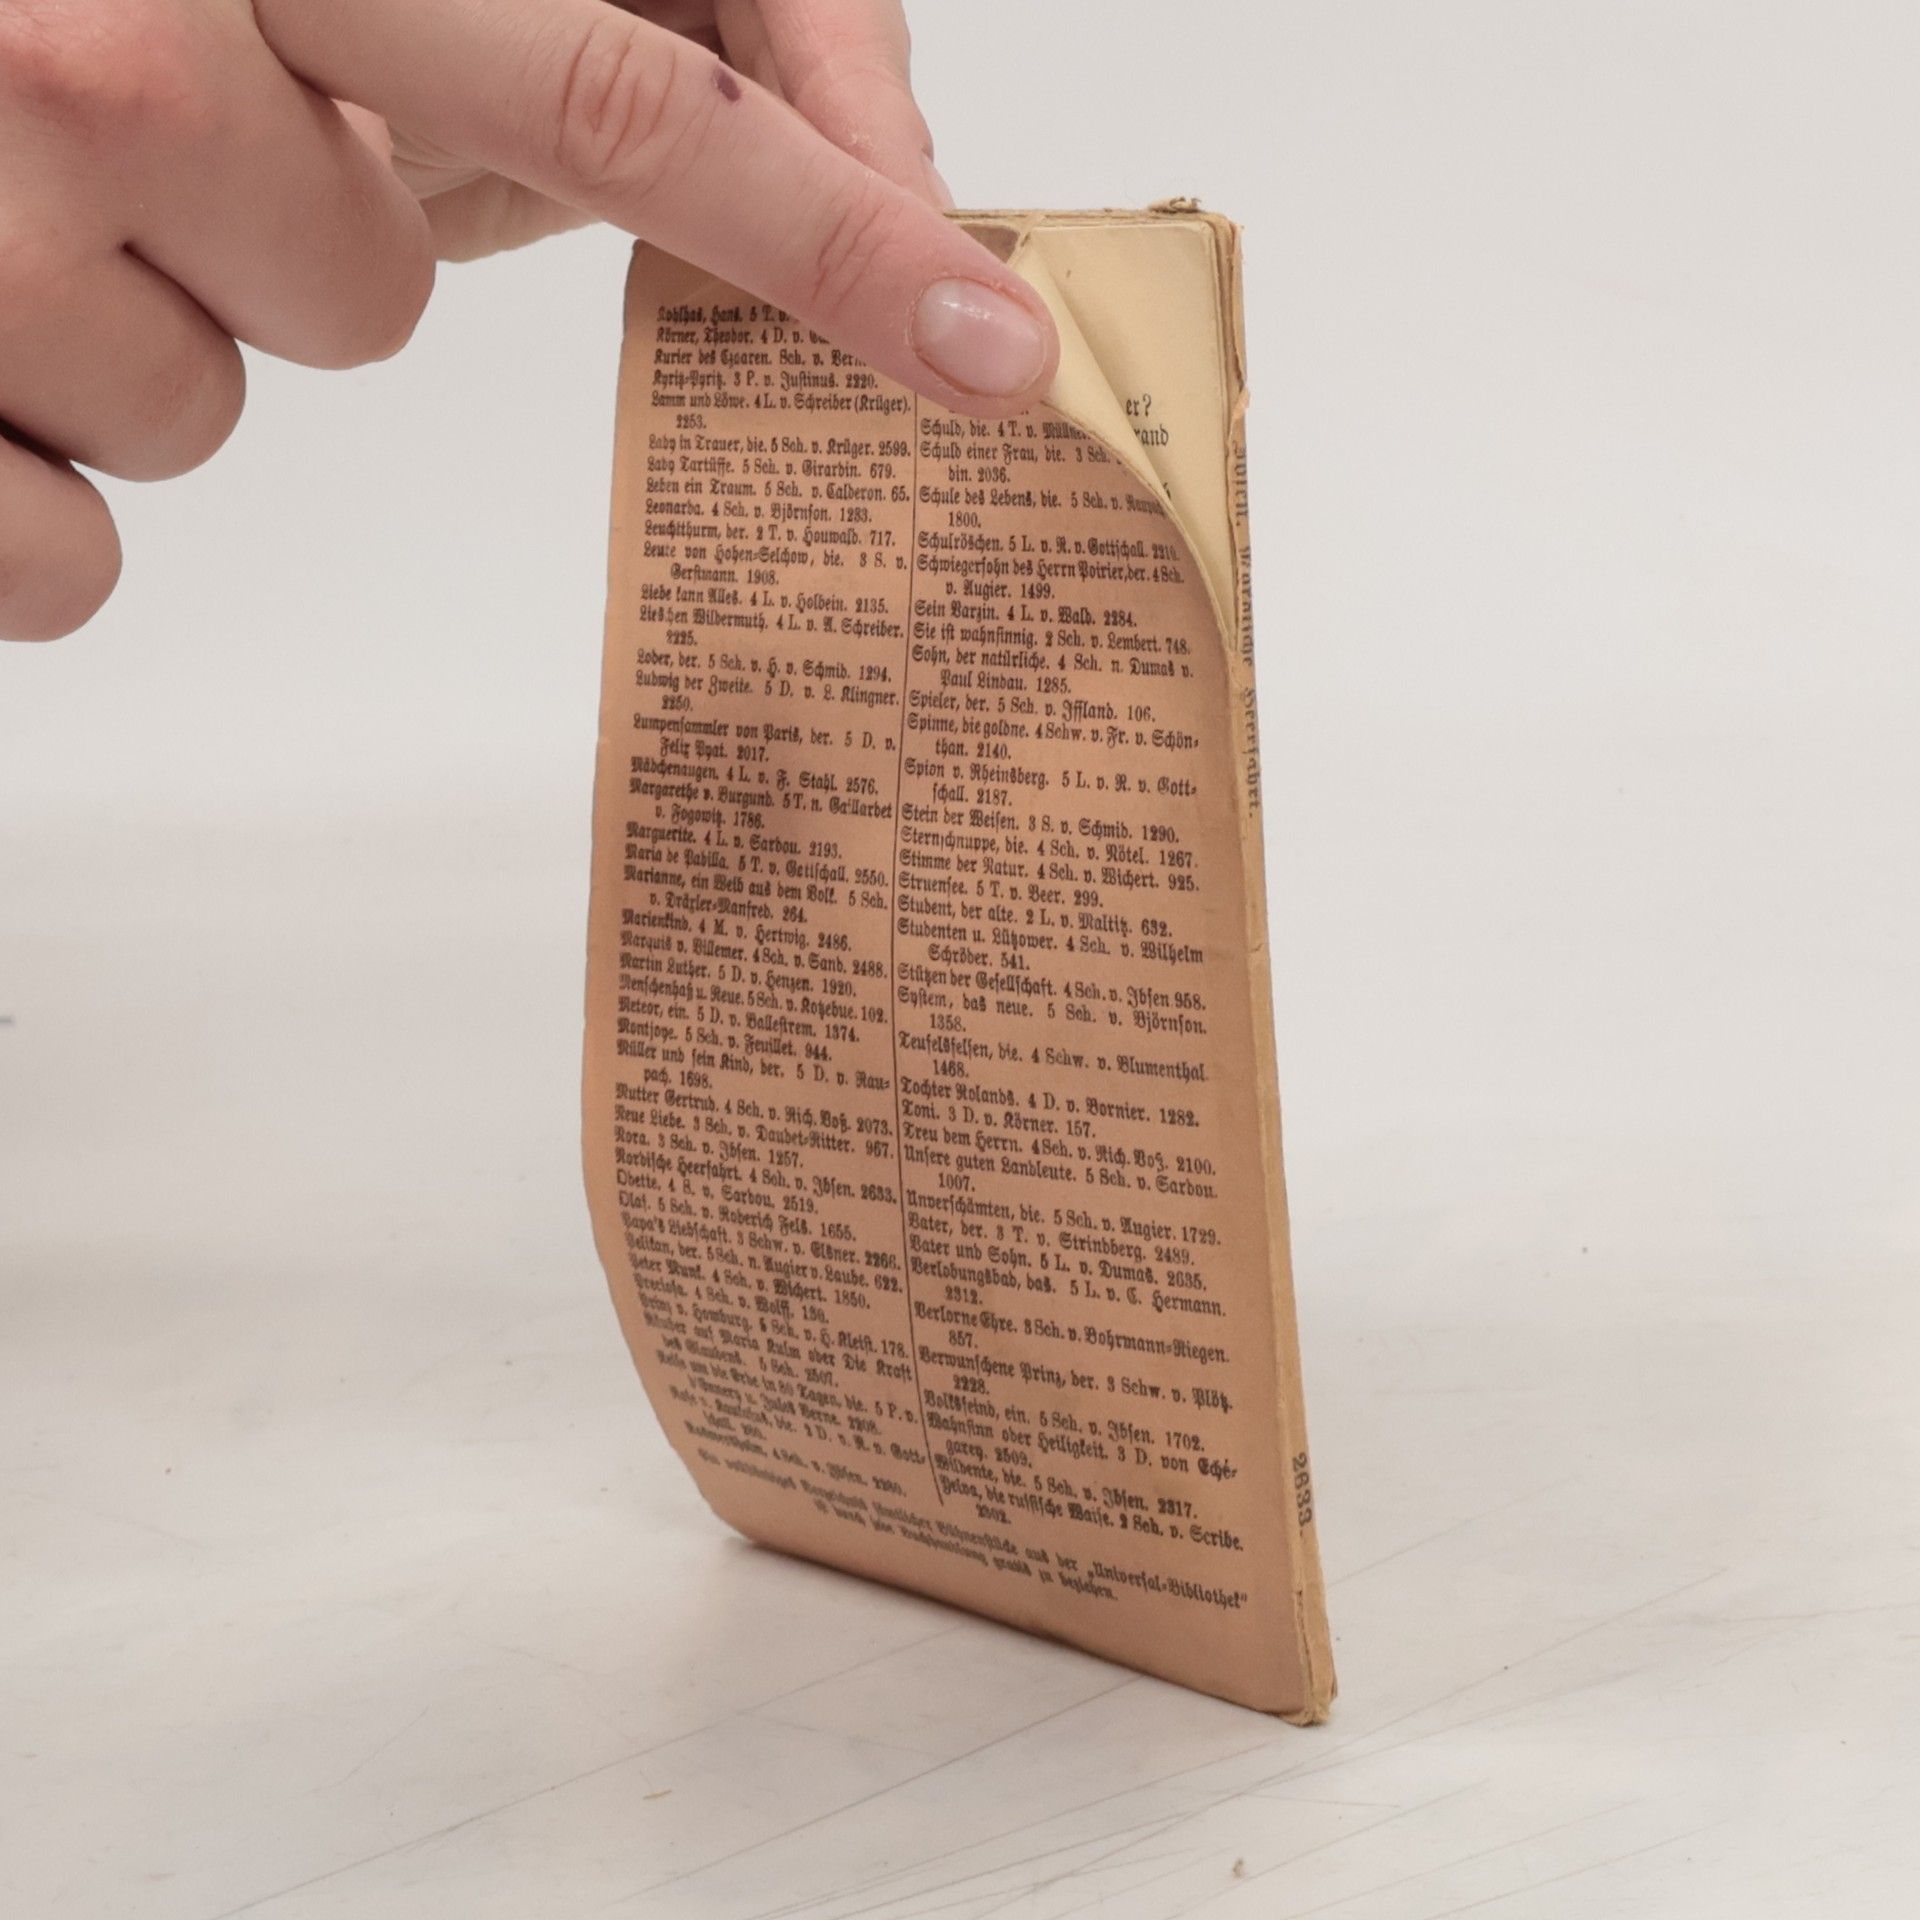 Kohlhas, Hans. 5 T. v.
Körner, Theodor. 4 D. v.
Kurier des Czaaren. Sch. v.
Kyritz-Pyritz. 3 P. v. Justinus. 2220.
Lamm und Löwe. 4 L. v. Schreiber (Krüger).
2253.
Lady in Trauer, die. 5 Sch. v. Krüger. 2599.
Lady Tartüffe. 5 Sch. v. Girardin. 679.
Leben ein Traum. 5 Sch. v. Calderon. 65.
Leonarda. 4 Sch. v. Björnson. 1233.
Leuchtthurm, der. 2 T. v. Houwald. 717.
Leute von Hohen-Selchow, die. 3 S. v.
Gerstmann. 1908.
Liebe kann Alles. 4 L. v. Holbein. 2135.
Lieschen Wildermuth. 4 L. v. A. Schreiber.
2225.
Loder, der. 5 Sch. v. H. v. Schmid. 1294.
Ludwig der Zweite. 5 D. v. L. Klingner.
2250.
Lumpensammler von Paris, der. 5 D. v.
Felix Pyat. 2017.
Mädchenaugen. 4 L. v. F. Stahl. 2576.
Margarethe v. Burgund. 5 T. n. Gaillardet
v. Fogowitz. 1786.
Marguerite. 4 L. v. Sardou. 2193.
Maria de Padilla. 5 T. v. Gottschall. 2550.
Marianne, ein Weib aus dem Volk. 5 Sch.
v. Dräxler-Manfred. 264.
Marienkind. 4 M. v. Hertwig. 2486.
Marquis v. Villemer. 4 Sch. v. Sand. 2488.
Martin Luther. 5 D. v. Henzen. 1920.
Menschenhaß u. Reue. 5 Sch. v. Kotzebue. 102.
Meteor, ein. 5 D. v. Ballestrem. 1374.
Montjoye. 5 Sch. v. Feuillet. 944.
Müller und sein Kind, der. 5 D. v. Rau-
pach. 1698.
Mutter Gertrud. 4 Sch. v. Rich. Voß. 2073.
Neue Liebe. 3 Sch. v. Daudet-Ritter. 967.
Nora. 3 Sch. v. Ibsen. 1257.
Nordische Heerfahrt. 4 Sch. v. Ibsen. 2633.
Odette. 4 S. v. Sardou. 2519.
Olaf. 5 Sch. v. Roderich Fels. 1655.
Papa's Liebschaft. 3 Schw. v. Elsner. 2266.
Pelikan, der. 5 Sch. n. Augier v. Laube. 622.
Peter Munk. 4 Sch. v. Wichert. 1850.
Preciosa. 4 Sch. v. Wolff. 130.
Prinz v. Homburg. 5 Sch. v. H. Kleist. 178.
Räuber auf Maria Kulm oder Die Kraft
des Glaubens. 5 Sch. 2507.
Reise um die Erde in 80 Tagen, die. 5 P. v.
d'Ennery u. Jules Verne. 2208.
Rose v. Kaukasus, die. 2 D. v. R. v. Gott-
schall. 280.
Rosmersholm. 4 Sch. v. Ibsen. 2280.
Schuld, die. 4 T. v. Müllner.
Schuld einer Frau, die. 3 Sch.
din. 2036.
Schule des Lebens, die. 5 Sch. v. Raupach
1800.
Schulröschen. 5 L. v. R. v. Gottschall. 2210.
Schwiegersohn des Herrn Poirier, der. 4 Sch.
v. Augier. 1499.
Sein Varzin. 4 L. v. Wald. 2284.
Sie ist wahnsinnig. 2 Sch. v. Lembert. 748.
Sohn, der natürliche. 4 Sch. n. Dumas v.
Paul Lindau. 1285.
Spieler, der. 5 Sch. v. Iffland. 106.
Spinne, die goldne. 4 Schw. v. Fr. v. Schön-
than. 2140.
Spion v. Rheinsberg. 5 L. v. R. v. Gott-
schall. 2187.
Stein der Weisen. 3 S. v. Schmid. 1290.
Sternschnuppe, die. 4 Sch. v. Nötel. 1267.
Stimme der Natur. 4 Sch. v. Wichert. 925.
Struensee. 5 T. v. Beer. 299.
Student, der alte. 2 L. v. Maltitz. 632.
Studenten u. Lützower. 4 Sch. v. Wilhelm
Schröder. 541.
Stützen der Gesellschaft. 4 Sch. v. Ibsen 958.
System, das neue. 5 Sch. v. Björnson.
1358.
Teufelsfelsen, die. 4 Schw. v. Blumenthal.
1468.
Tochter Rolands. 4 D. v. Bornier. 1282.
Toni. 3 D. v. Körner. 157.
Treu dem Herrn. 4 Sch. v. Rich. Voß. 2100.
Unsere guten Landleute. 5 Sch. v. Sardou.
1007.
Unverschämten, die. 5 Sch. v. Augier. 1729.
Vater, der. 3 T. v. Strindberg. 2489.
Vater und Sohn. 5 L. v. Dumas. 2635.
Verlobungsbad, das. 5 L. v. C. Hermann.
2312.
Verlorne Ehre. 3 Sch. v. Bohrmann-Riegen.
857.
Verwunschene Prinz, der. 3 Schw. v. Plötz.
2228.
Volksfeind, ein. 5 Sch. v. Ibsen. 1702.
Wahnsinn oder Heiligkeit. 3 D. von Eché-
garey. 2509.
Wildente, die. 5 Sch. v. Ibsen. 2317.
Yelva, die russische Waise. 2 Sch. v. Scribe.
2302.
Ein vollständiges Verzeichnis sämtlicher Bühnenstücke aus der „Universal-Bibliothek"
ist durch jede Buchhandlung gratis zu beziehen.
er?
rand
Ibsen. Nordische Heerfahrt.
2633.